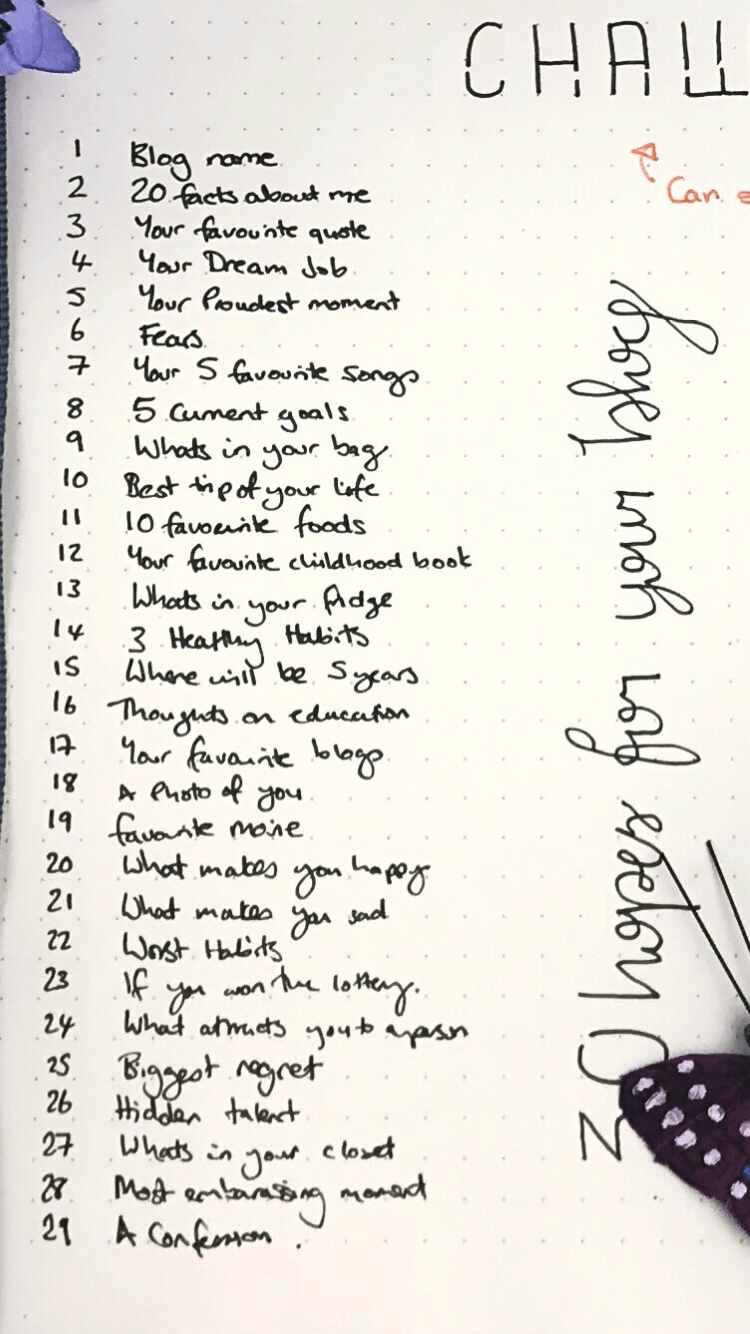 CHALL
1 Blog name
2 20 facts about me
3 Your favourite quote
4 Your Dream Job
5 Your Proudest moment
6 Fears
7 Your 5 favourite songs
8 5 current goals
9 Whats in your bag
10 Best trip of your life
11 10 favourite foods
12 Your favourite childhood book
13 Whats in your fridge
14 3 Healthy Habits
15 Where will be 5 years
16 Thoughts on education
17 Your favourite blogs
18 A Photo of you
19 favourite movie
20 What makes you happy
21 What makes you sad
22 Worst Habits
23 If you won the lottery.
24 What attracts you to a person
25 Biggest regret
26 Hidden talent
27 Whats in your closet
28 Most embarassing moment
29 A Confession.
Can
30 hopes for your blog